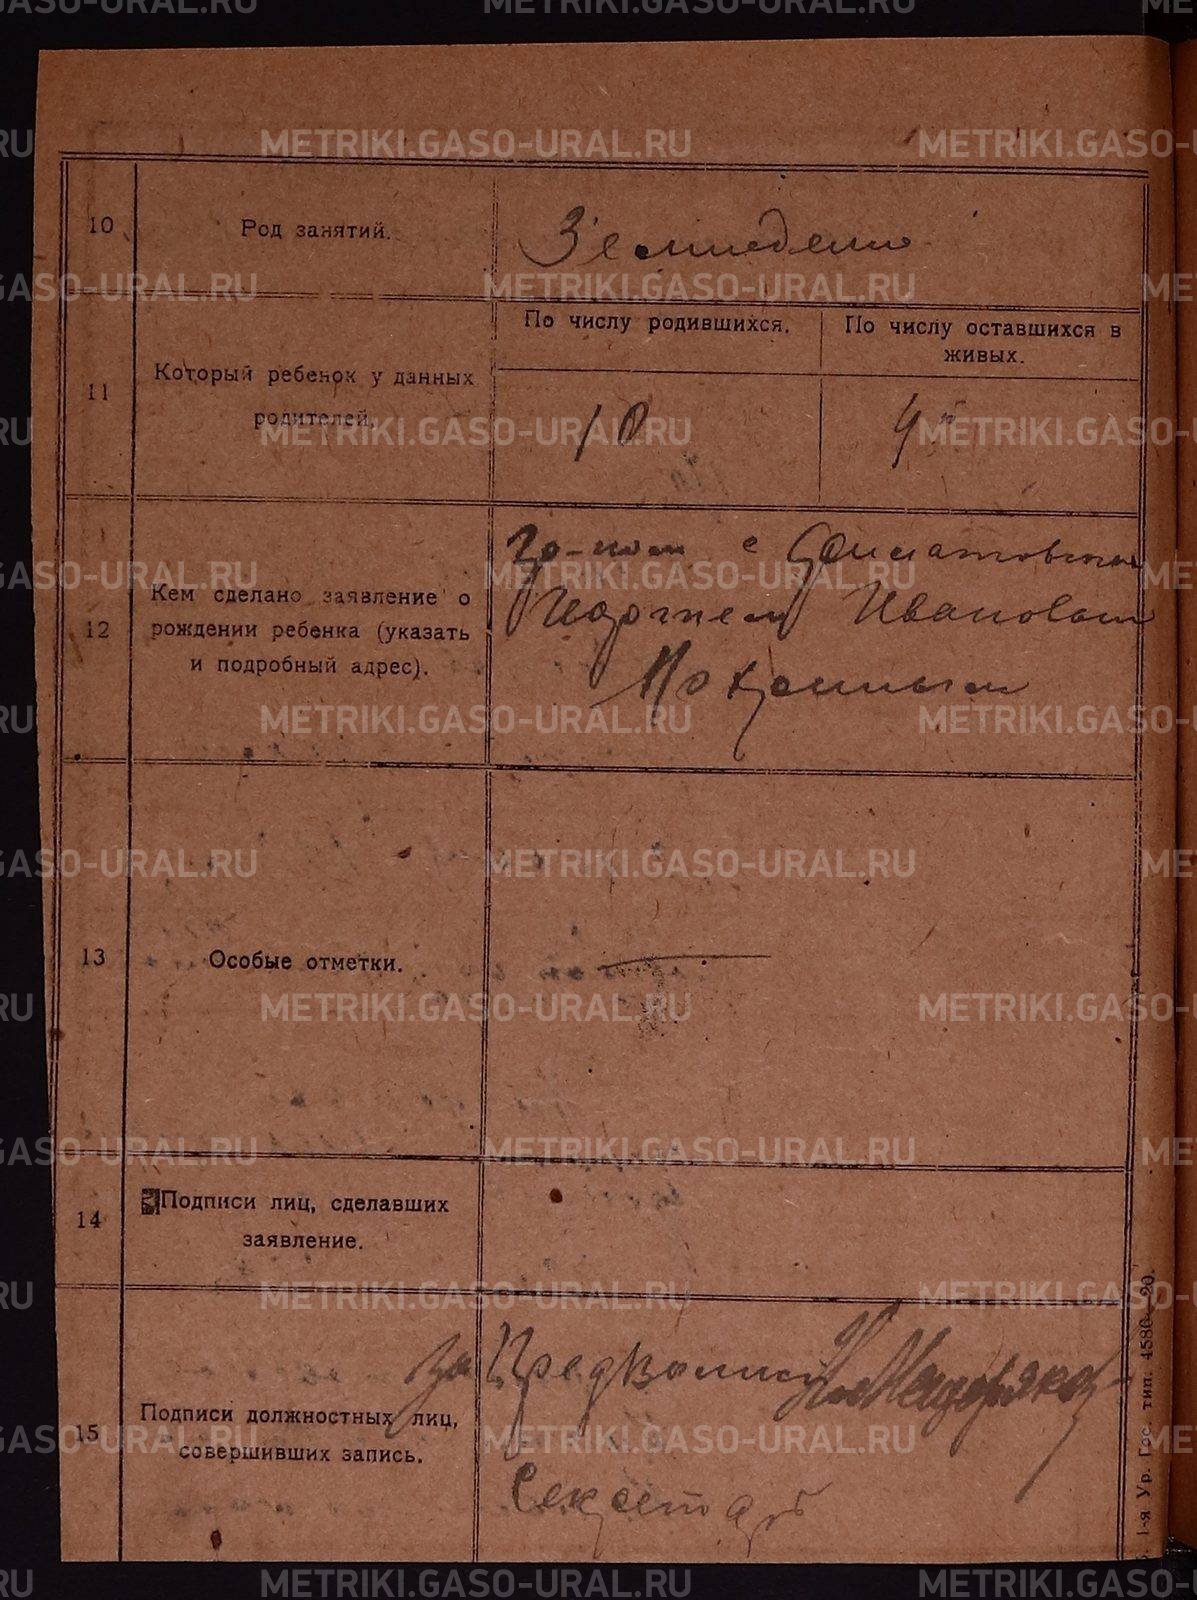 METRIKI.GASO-URAL.RU
10
Род занятий.
11
Который ребенок у данных
родителей.
По числу родившихся.
По числу оставшихся в
живых.
10
4й
12
Кем сделано заявление о
рождении ребенка (указать
и подробный адрес).
с
Ивановым
13
Особые отметки.
14
Подписи лиц, сделавших
заявление.
15
Подписи должностных лиц,
совершивших запись.
За
Секретарь
1-я Ур. Гос. тип. 4580—20.